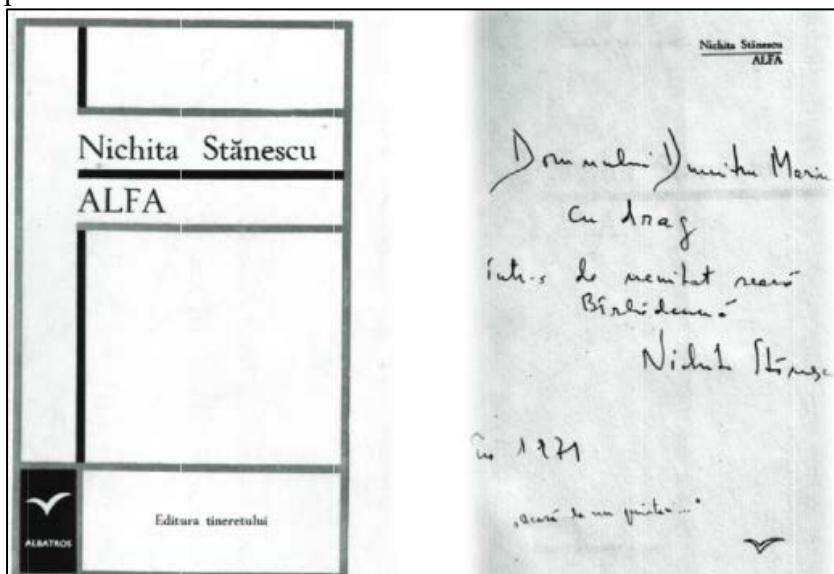 Nichita Stănescu
ALFA
ALBATROS
Editura tineretului
Nichita Stănescu
ALFA
Domnului Dumitru Marin
cu drag
într-o de neuitat seară
Bîrlădeană
Nichita Stănesc
în 1971